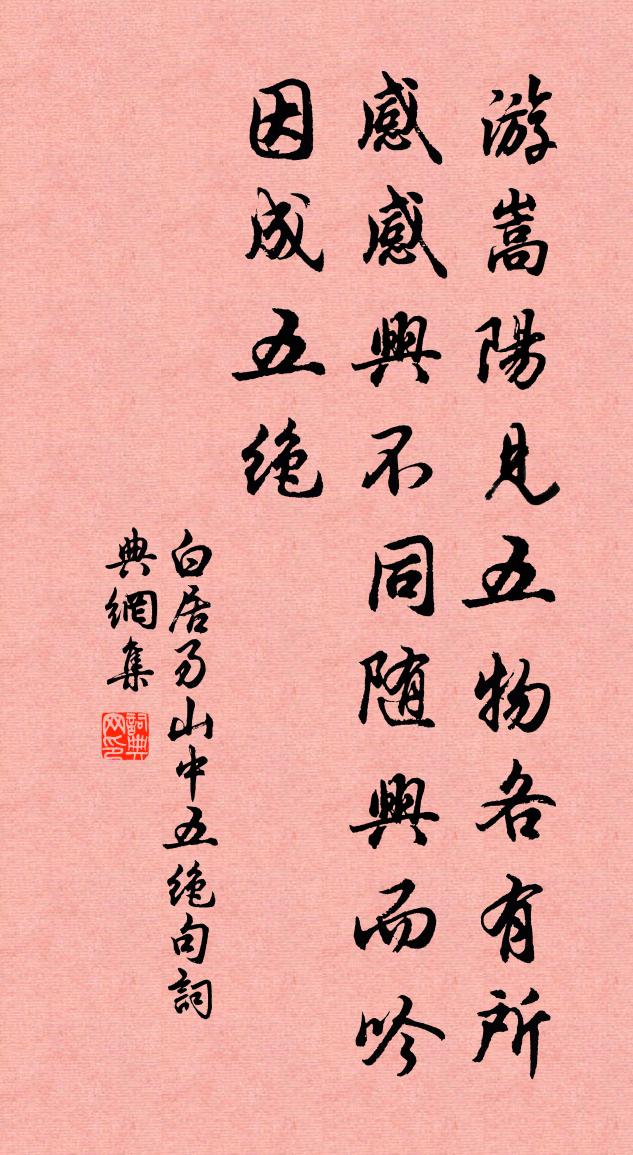 游嵩陽見五物各有所
感感興不同随興而吟
因成五绝
白居易山中五绝句詞
典網集
詞典網印